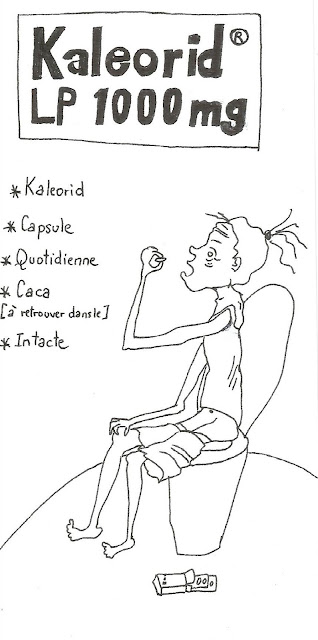 Kaleorid®
LP 1000mg
* Kaleorid
* Capsule
* Quotidienne
* Caca
[à retrouver dans le]
* Intacte